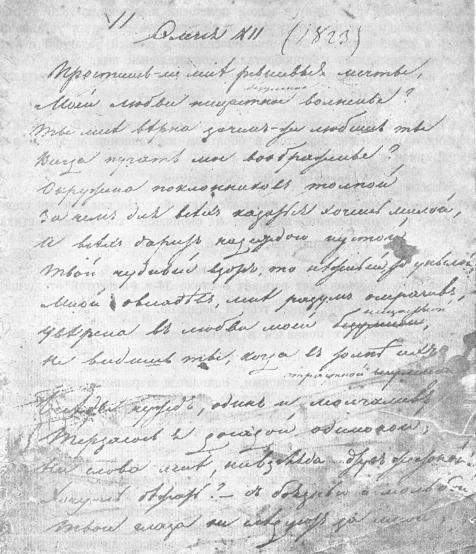 11
Элегія XII (1823)
Простишь-ли мнѣ ревнивыя мечты,
безумное
Моей любви нещастное волненье?
Ты мнѣ вѣрна зачѣмъ-же любишь ты
Всегда пугать мое воображенье?
Окружена поклонниковъ толпой
Зачемъ для всехъ казаться хочешь милой,
И всѣхъ даритъ надеждою пустой
Твой чудный взоръ, то нѣжный, то унылой
Мной овладѣвъ, мнѣ разумъ омрачивъ,
нещастной
Увѣрена въ любви моей
Не видишь ты, когда въ толпѣ ихъ
страстной
Бесѣды чуждъ, одинъ и молчаливъ
Терзаюсь я досадой одинокой;
Ни слова мнѣ, ни взгляда - другъ жестокой!
Хочу ль бѣжать? - съ боязнью и мольбой
Твои глаза не слѣдуютъ за мной;